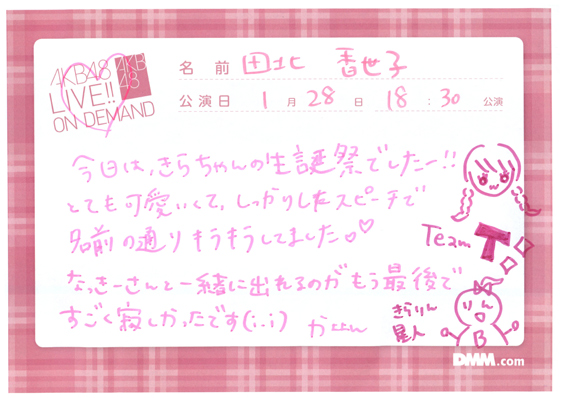 AKB48
LIVE!!
ON DEMAND
AKB
48
名前 田北 香世子
公演日 1月28日 18:30 公演
今日は、きらちゃんの生誕祭でしたー!!
とても可愛いくて、しっかりしたスピーチで
名前の通りキラキラしてました♡♡
なっきーさんと一緒に出れるのがもう最後で
すごく寂しかったです(i..i)
Team T
きらりん
星人
りん
B
DMM.com